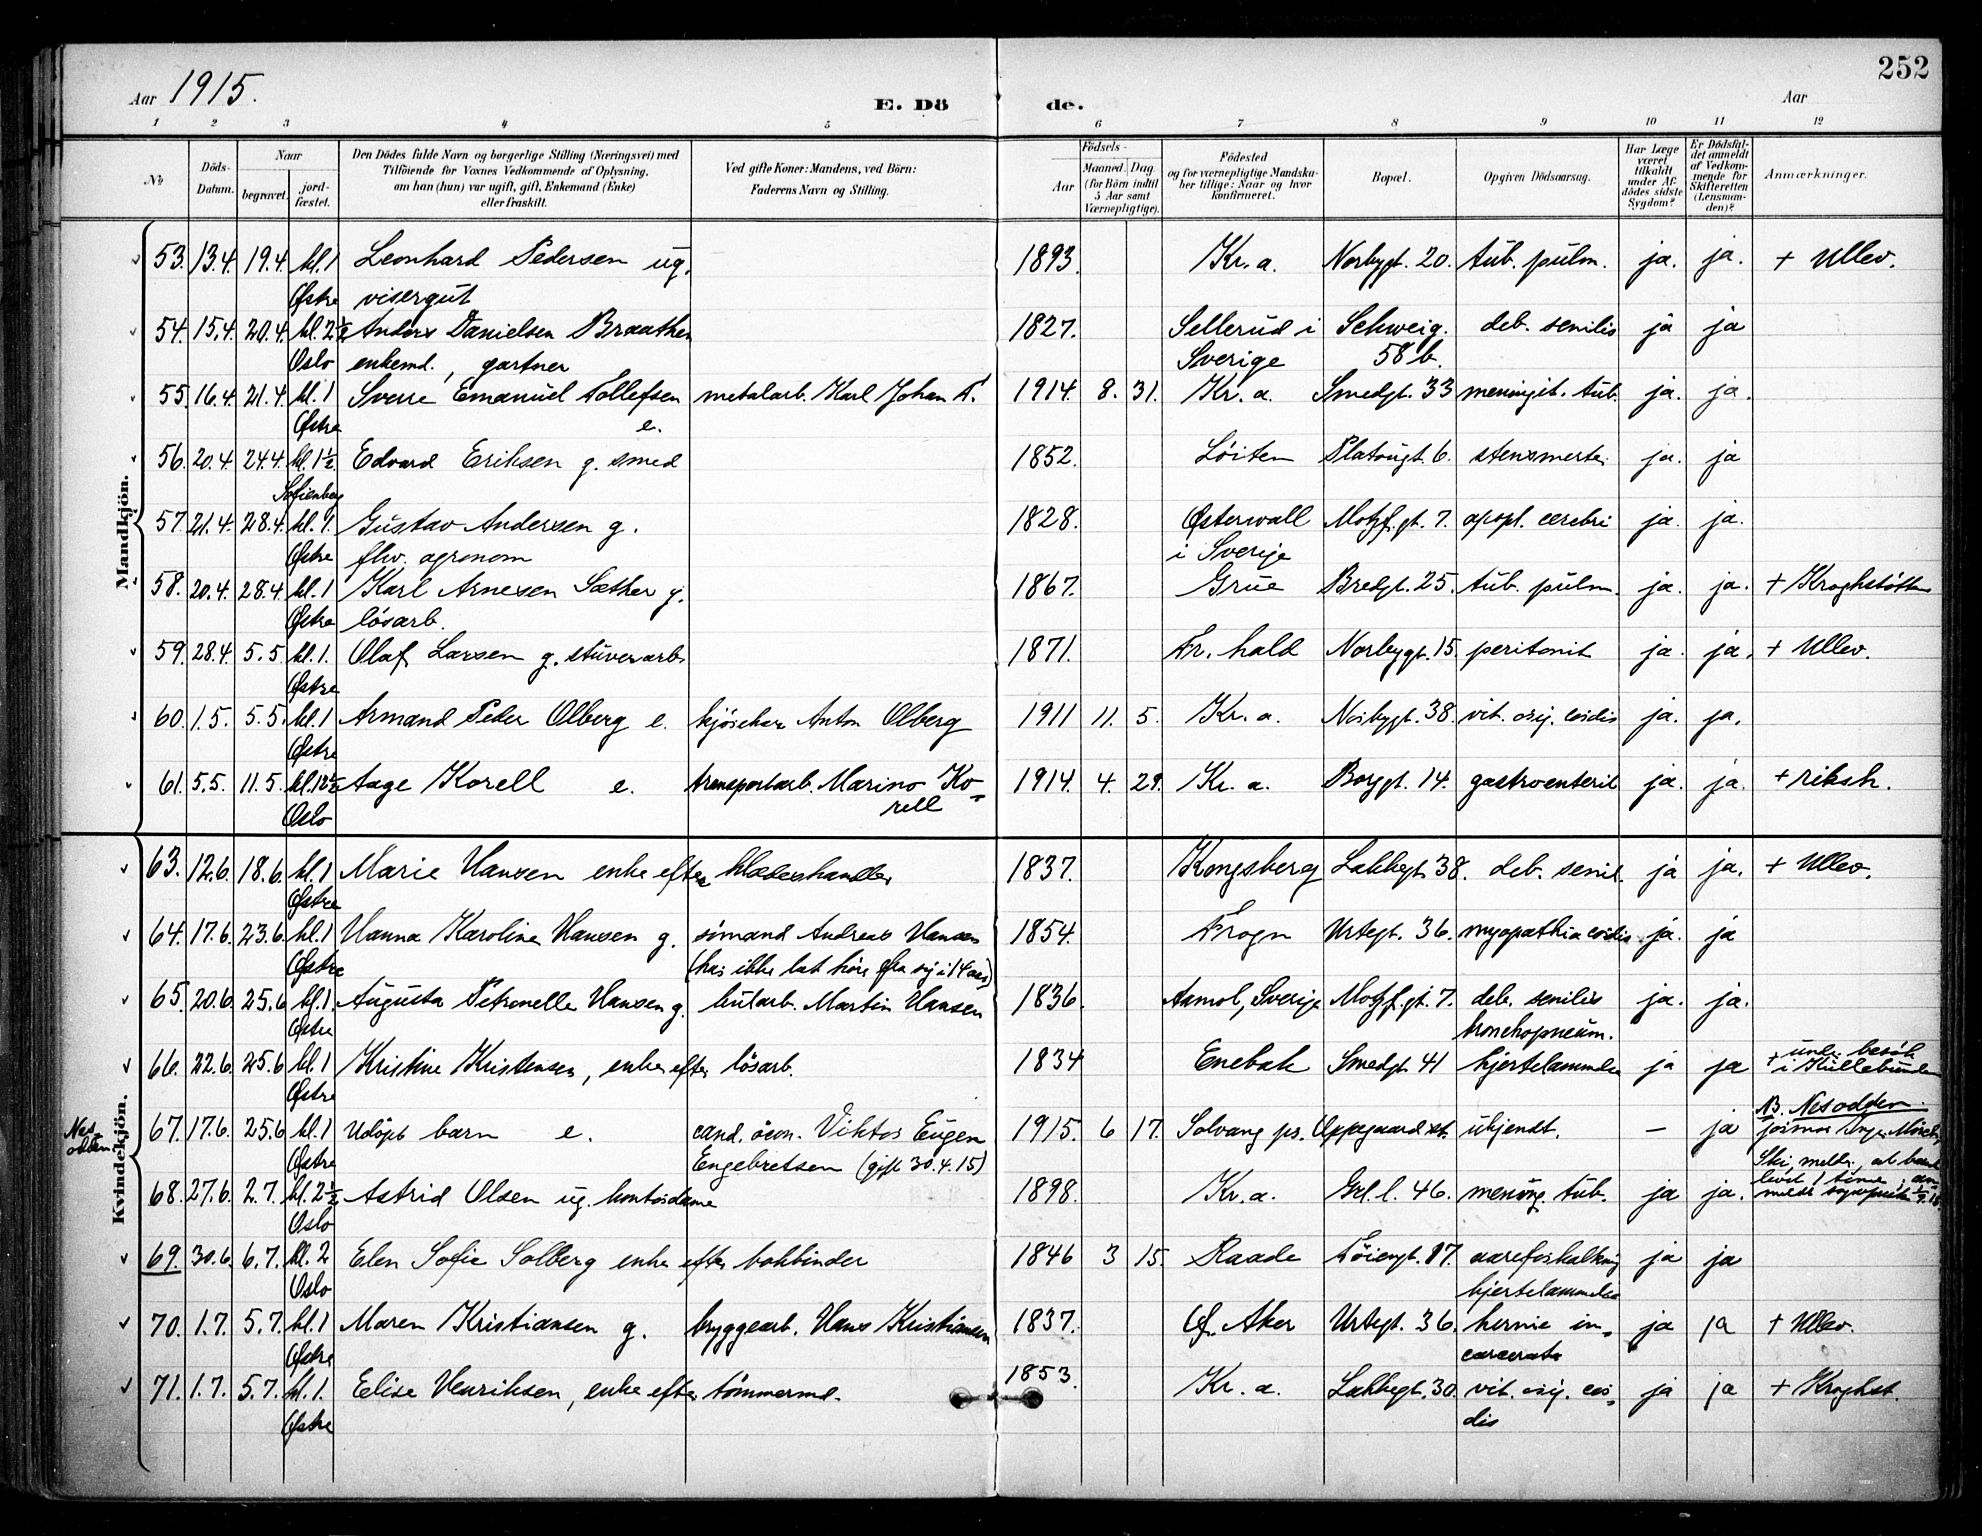 252
Aar 1915.
E. Dö de.
Aar
1 2 3 4 5 6 7 8 9 10 11 12
No
Döds-Datum.
Naar
begravet.
jord-fæstet.
Den Dödes fulde Navn og borgerlige Stilling (Næringsvei) med
Tilföiende for Voxnes Vedkommende af Oplysning,
om han (hun) var ugift, gift, Enkemand (Enke)
eller fraskilt.
Ved gifte Koner: Mandens, ved Börn:
Faderens Navn og Stilling.
Födsels-
Aar
Maaned.
Dag
(for Börn indtil
5 Aar samt
Værnepligtige).
Födested
og for værnepligtige Mandska-
ber tillige: Naar og hvor
konfirmeret.
Bopæl.
Opgiven Dödsaarsag.
Har Læge
været
tilkaldt
under Af-
dödes sidste
Sygdom?
Er Dödsfal-
det anmeldt
af Vedkom-
mende for
Skifteretten
(Lensman-
den)?
Anmærkninger.
Mandkjön.
53. 13.4. 19.4. kl. 1 Leonhard Pedersen ug. 1893. Kr.a. Norbygt. 20. tub. pulm. ja. ja. + Ullev.
Østre visergut
54. 15.4. 20.4. kl. 2½ Anders Danielsen Braathen 1827. Sellerud i Schweig. deb. senilis ja ja
Oslo enkemd., gartner Sverige 58 b.
55. 16.4. 21.4. kl. 1 Sverre Emanuel Tollefsen metalarb. Karl Johan T. 1914. 8. 31. Kr.a. Smedgt. 33 meningit. tub. ja. ja.
Østre e.
56. 20.4. 24.4. kl. 1½ Edvard Eriksen g. smed 1852. Løiten Platougt. 6. ja. ja
Sofienberg
57. 21.4. 28.4. kl. 1. Gustav Andersen g. 1828. Østerwall Motzf. gt. 7. apopl. cerebri ja. ja.
Østre fhv. agronom i Sverige
58. 20.4. 28.4. kl. 1 Karl Arnesen Sæther g. 1867. Grue Bredgt. 25. tub. pulm. ja. ja. + Kroghstøtten
Østre lösarb.
59. 28.4. 5.5. kl. 1. Olaf Larsen g. stuverarb. 1871. Fr. hald Norbygt. 15. peritonit ja. ja. + Ullev.
Østre
60. 1.5. 5.5. kl. 1 Armand Peder Olberg e. kjörekar Anton Olberg 1911 11. 5. Kr.a. Norbygt. 38. vit. orig. cordis ja. ja.
Østre
61. 5.5. 11.5. kl. 12½ Aage Korell e. transportarb. Marino Ko- 1914. 4. 29. Kr.a. Borggt. 14. gastroenterit ja. ja. + riksh.
Oslo rell
Kvindekjön.
63. 12.6. 18.6. kl. 1 Marie Hansen enke efter klædeshandler 1837. Kongsberg Lakkegt. 38. deb. senil. ja ja. + Ullev.
Østre
64. 17.6. 23.6. kl. 1 Hanna Karoline Hansen g. sömand Andreas Hansen 1854. Frogn Urtegt. 36. myopathia cordis ja. ja
Østre (har ikke lat höre fra sig i 14 aar)
65. 20.6. 25.6 kl. 1. Augusta Petronelle Hansen g. Martin Hansen 1836. Aamol, Sverige Motzf. gt. 7. deb. senilis ja. ja.
Østre bronchopneum.
66. 22.6. 25.6 kl. 1 Kristine Kristensen, enke efter lösarb. 1834 Enebak Smedgt. 41 hjertelammelse ja ja + under besök
Østre i
Nes-
odden
67. 17.6. 25.6 kl. 1 Udöpt barn e. cand. öcon. Viktor Eugen 1915. 6 17. Solvang pr. Oppegaard st. ukjendt. — ja NB. Nesodden.
Østre Engebretsen (gift 30.4.15) jormor
Ski, melder, at barnet
68. 27.6. 2.7. kl. 2½ Astrid Olsen ug. kontordame 1898. Kr.a. Grl. l. 46. mening. tub. ja ja. levet 1 time,
Oslo
69. 30.6. 6.7. kl. 2 Elen Sofie Solberg enke efter bokbinder 1846 3 15. Raade Töiengt. 17. aareforkalkning ja ja
Oslo hjertelammelse
70. 1.7. 5.7. kl. 1 Maren Kristiansen g. bryggearb. Hans Kristiansen 1837. Ø. Aker Urtegt. 36. hernie in- ja ja + Ullev.
Østre carcerata
71. 1.7. 5.7. kl. 1. Elise Henriksen, enke efter tömmermd. 1853. Kr.a. Lakkegt. 30. vit. orig. cor- ja ja + Kroghst.
Østre dis